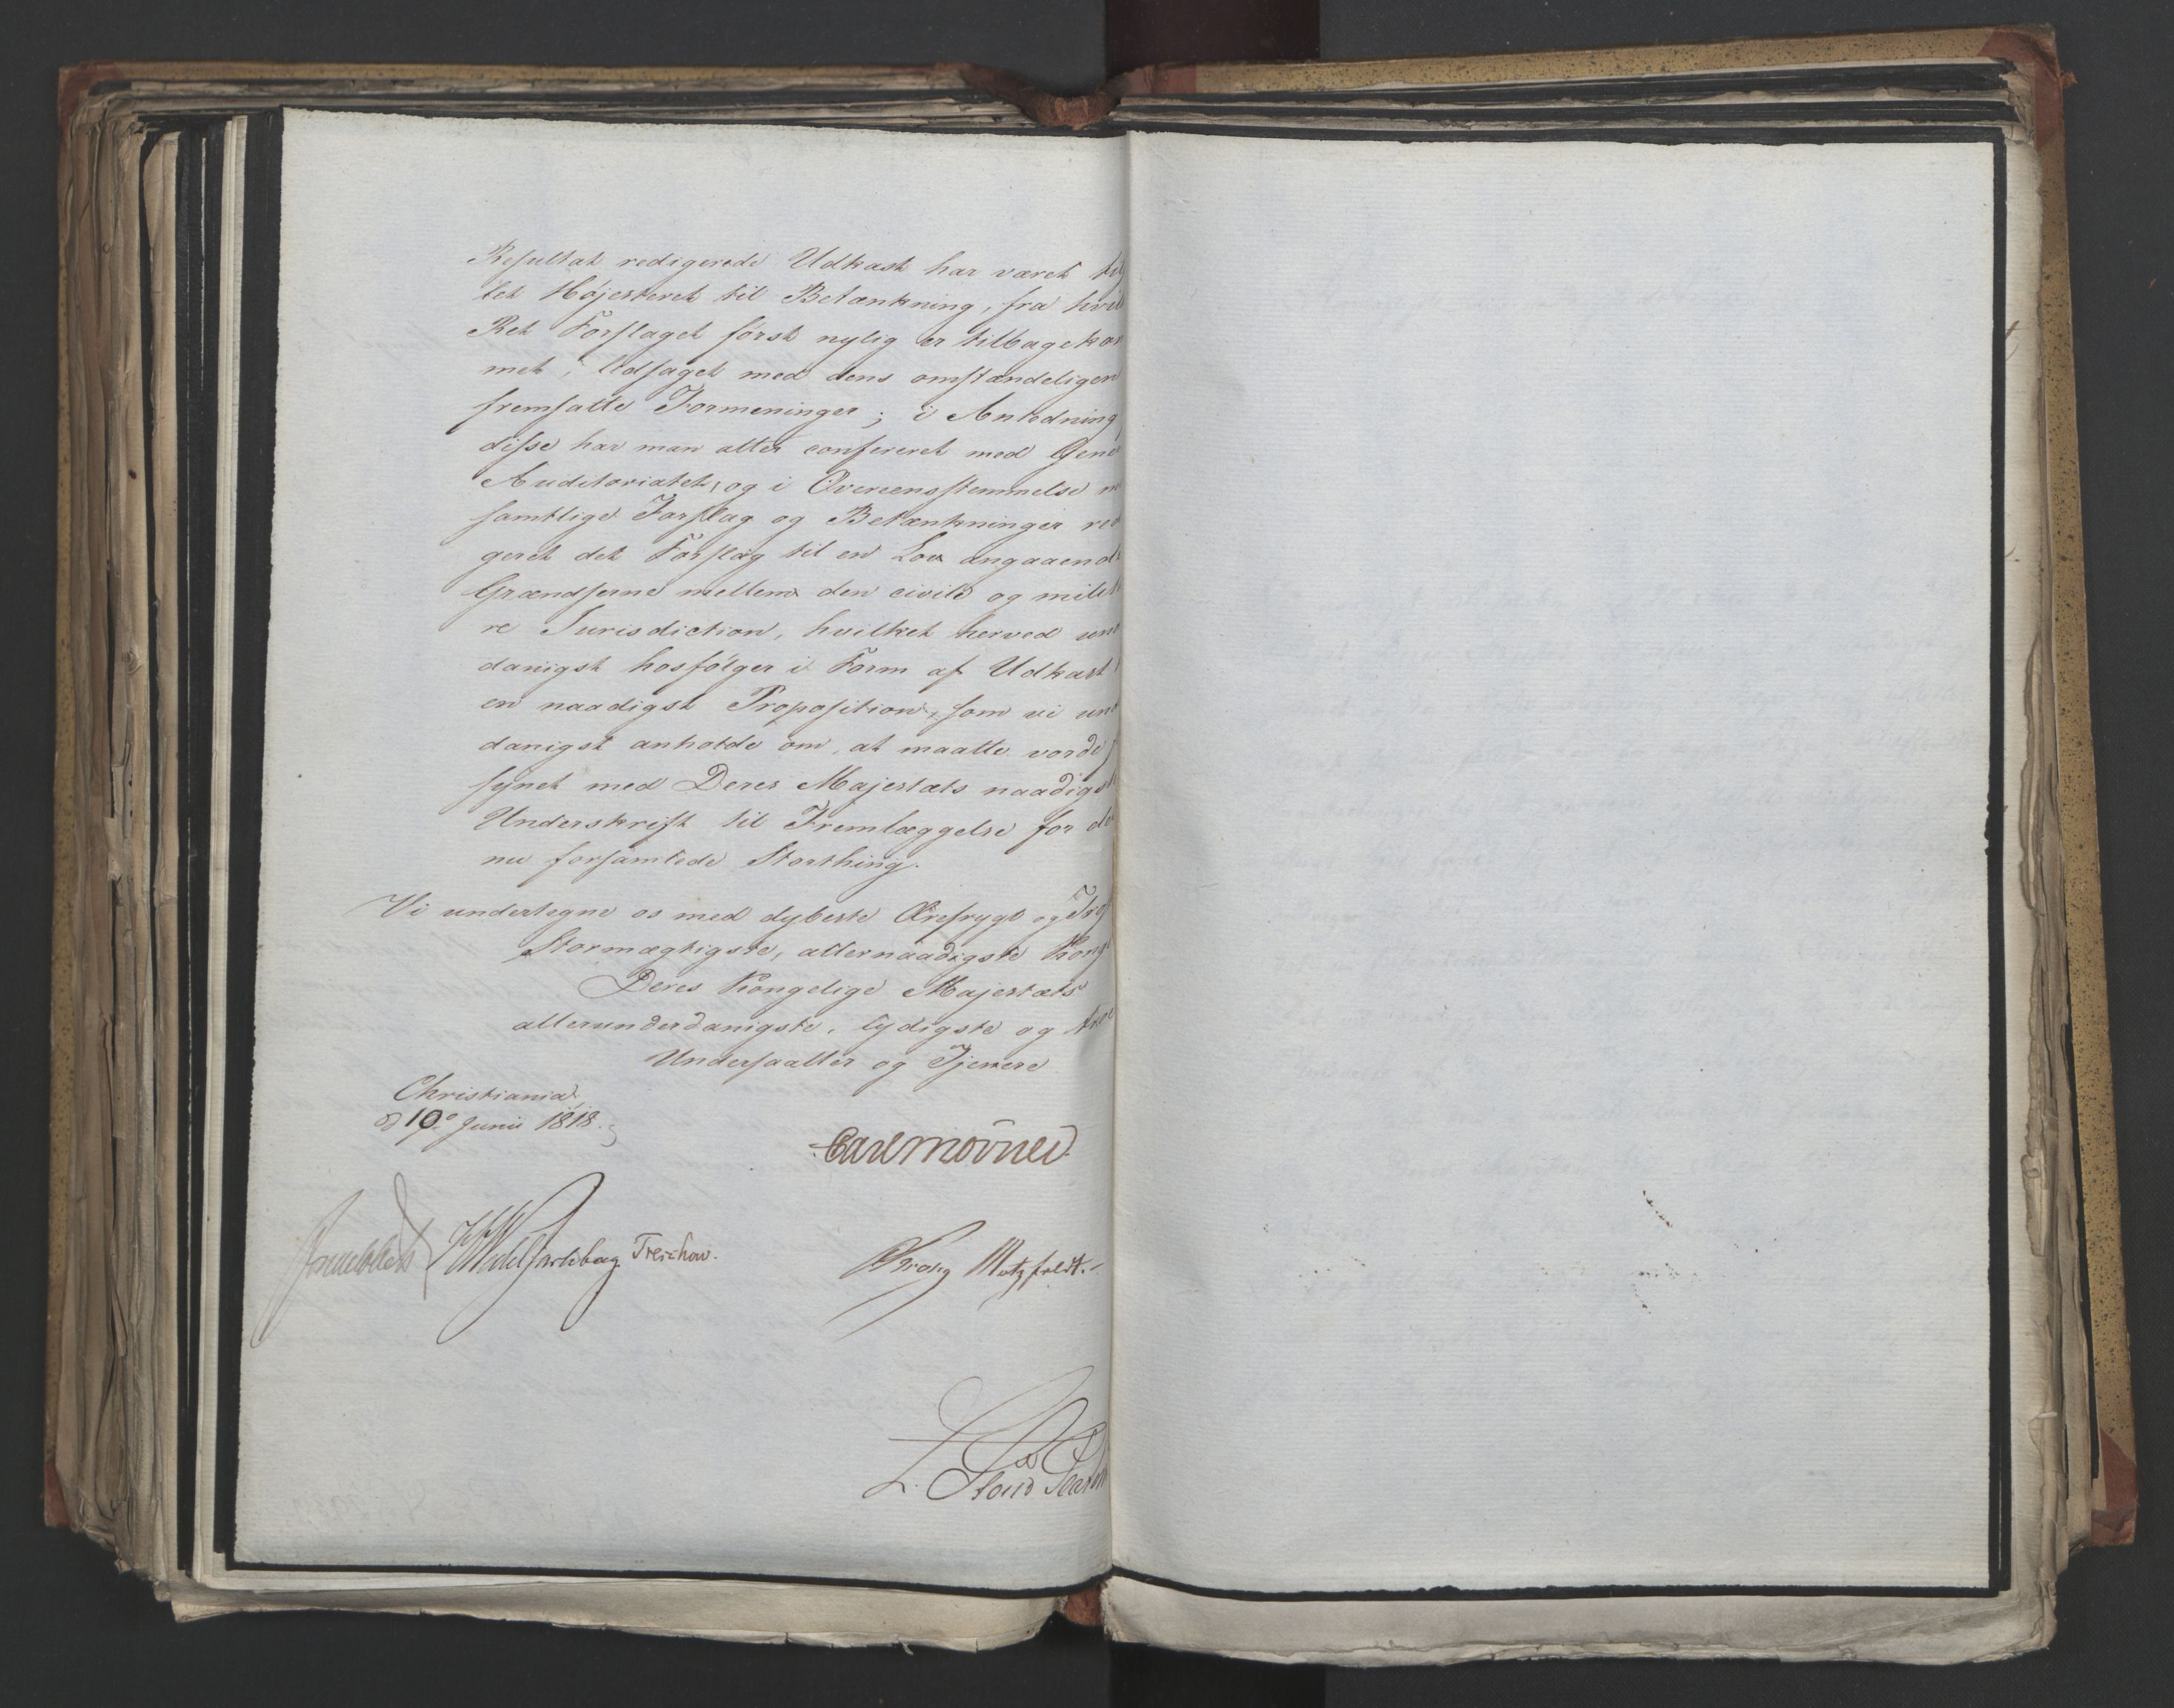 Resultat redigerede Udkast har været til
let Højesteret til Betænkning, fra hvil
Ret Forslaget først nylig er tilbagekom
met, ledsaget med dens omstændeligen
fremsatte Formeninger; i Anledning
disse har man atter confereret med Gene
Auditoriatet, og i Overeensstemmelse m
samtlige Forslag og Betænkninger redi
geret det Forslag til en Lov angaaende
Grændserne mellem den civile og milit
re Jurisdiction, hvilket herved und
danigst hosfølger i Form af Udkast
en naadigst Proposition, som vi und
danigst anholde om, at maatte vorde
synet med Deres Majestæts naadigst
Underskrift til Fremlæggelse for det
nu forsamlede Storthing.
Vi undertegne os med dybeste Ærefrygt og
Stormægtigste, allernaadigste Konge
Deres Kongelige Majestæts
allerunderdanigste, lydigste og troe
Undersaatter og Tjenere
Christiania,
d 10e Junii 1818.
Carl Mörner
Sommerhielm Wedel Jarlsberg Treschow.
Krog Motzfeldt.
L. Stoud Platou